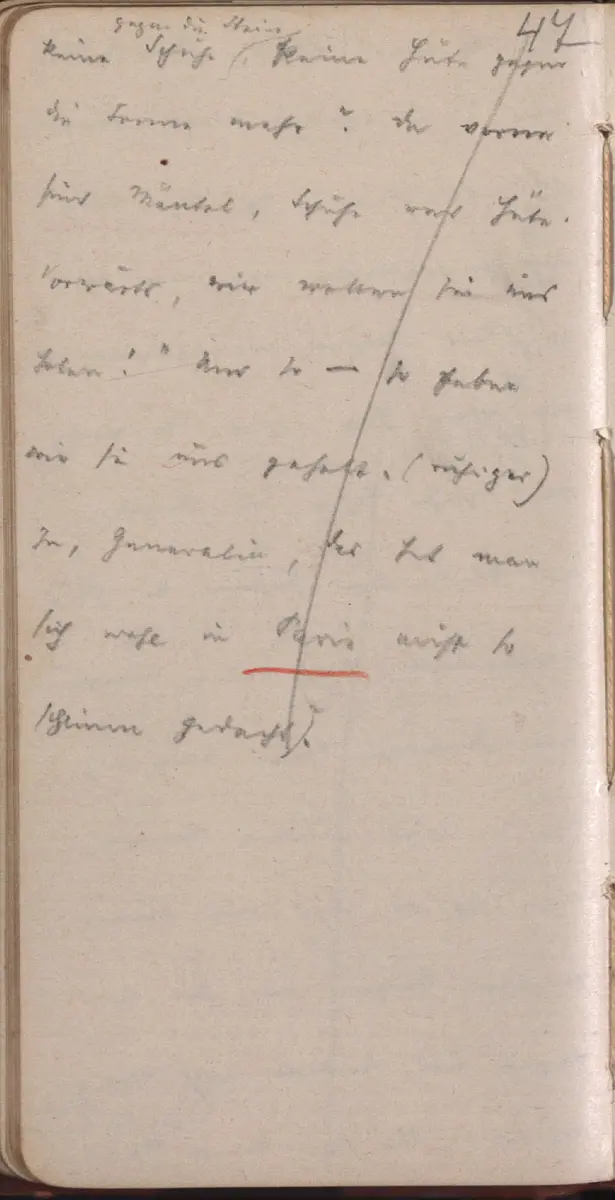 47
gegen die Steine
keine Schuhe, keine Hüte gegen
die Sonne mehr? Da vorne
sind Mäntel, Schuhe und Hüte.
Vorwärts, wir wollen sie uns
holen!" Und so — so haben
wir sie uns geholt. (ruhiger)
Ja, Generalin, das hat man
sich wohl in Paris nicht so
schlimm gedacht?